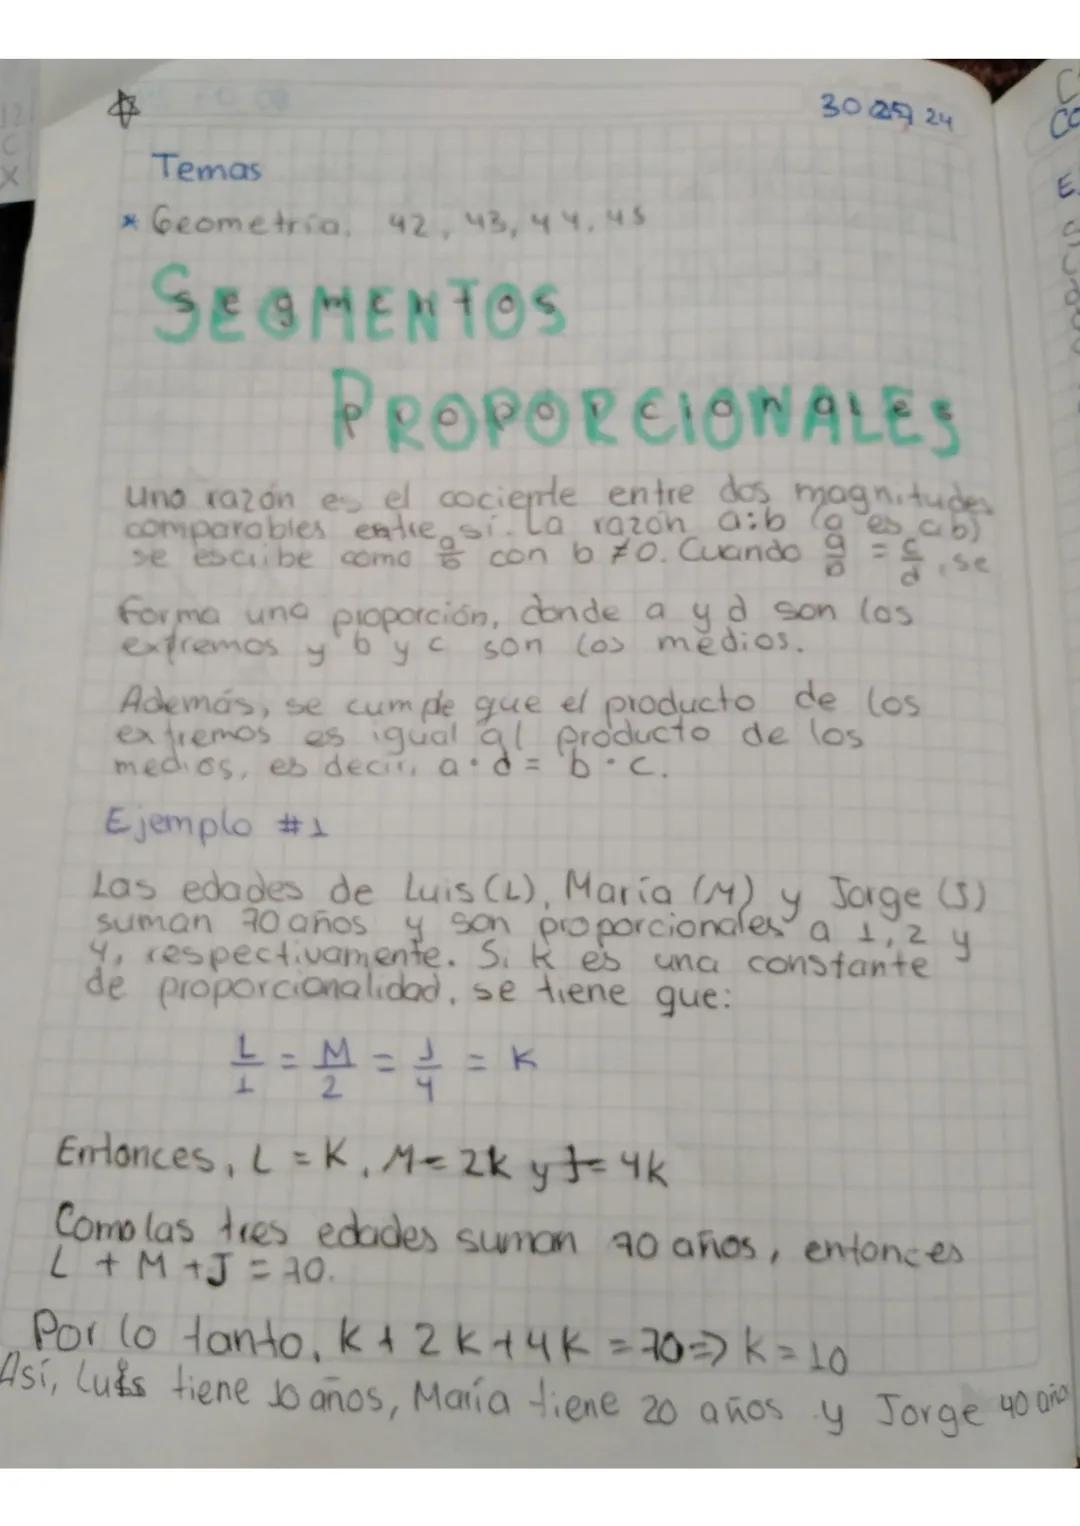 30 24
Temas
* Geometría. 42, 43, 44, 45
SEGMENTOS
PROPORCIONALES
una razón es el cociente entre dos magnitudes
comparables entre sí. La razón a:b (a es a b)
se escribe como a/b con b ≠ 0. Cuando a/b = c/d, se
forma una proporción, donde a y d son los
extremos y b y c son los medios.
Además, se cumple que el producto de los
extremos es igual al producto de los
medios, es decir, a · d = b · c.
Ejemplo #1
Las edades de Luis (L), María (M) y Jorge (J)
suman 70 años y son proporcionales a 1, 2 y
4, respectivamente. Si k es una constante
de proporcionalidad, se tiene que:
L/1 = M/2 = J/4 = K
Entonces, L = K, M = 2k y J = 4k
Como las tres edades suman 70 años, entonces
L + M + J = 70.
Por lo tanto, k + 2k + 4k = 70 => k = 10
Así, Luis tiene 10 años, María tiene 20 años y Jorge 40 año